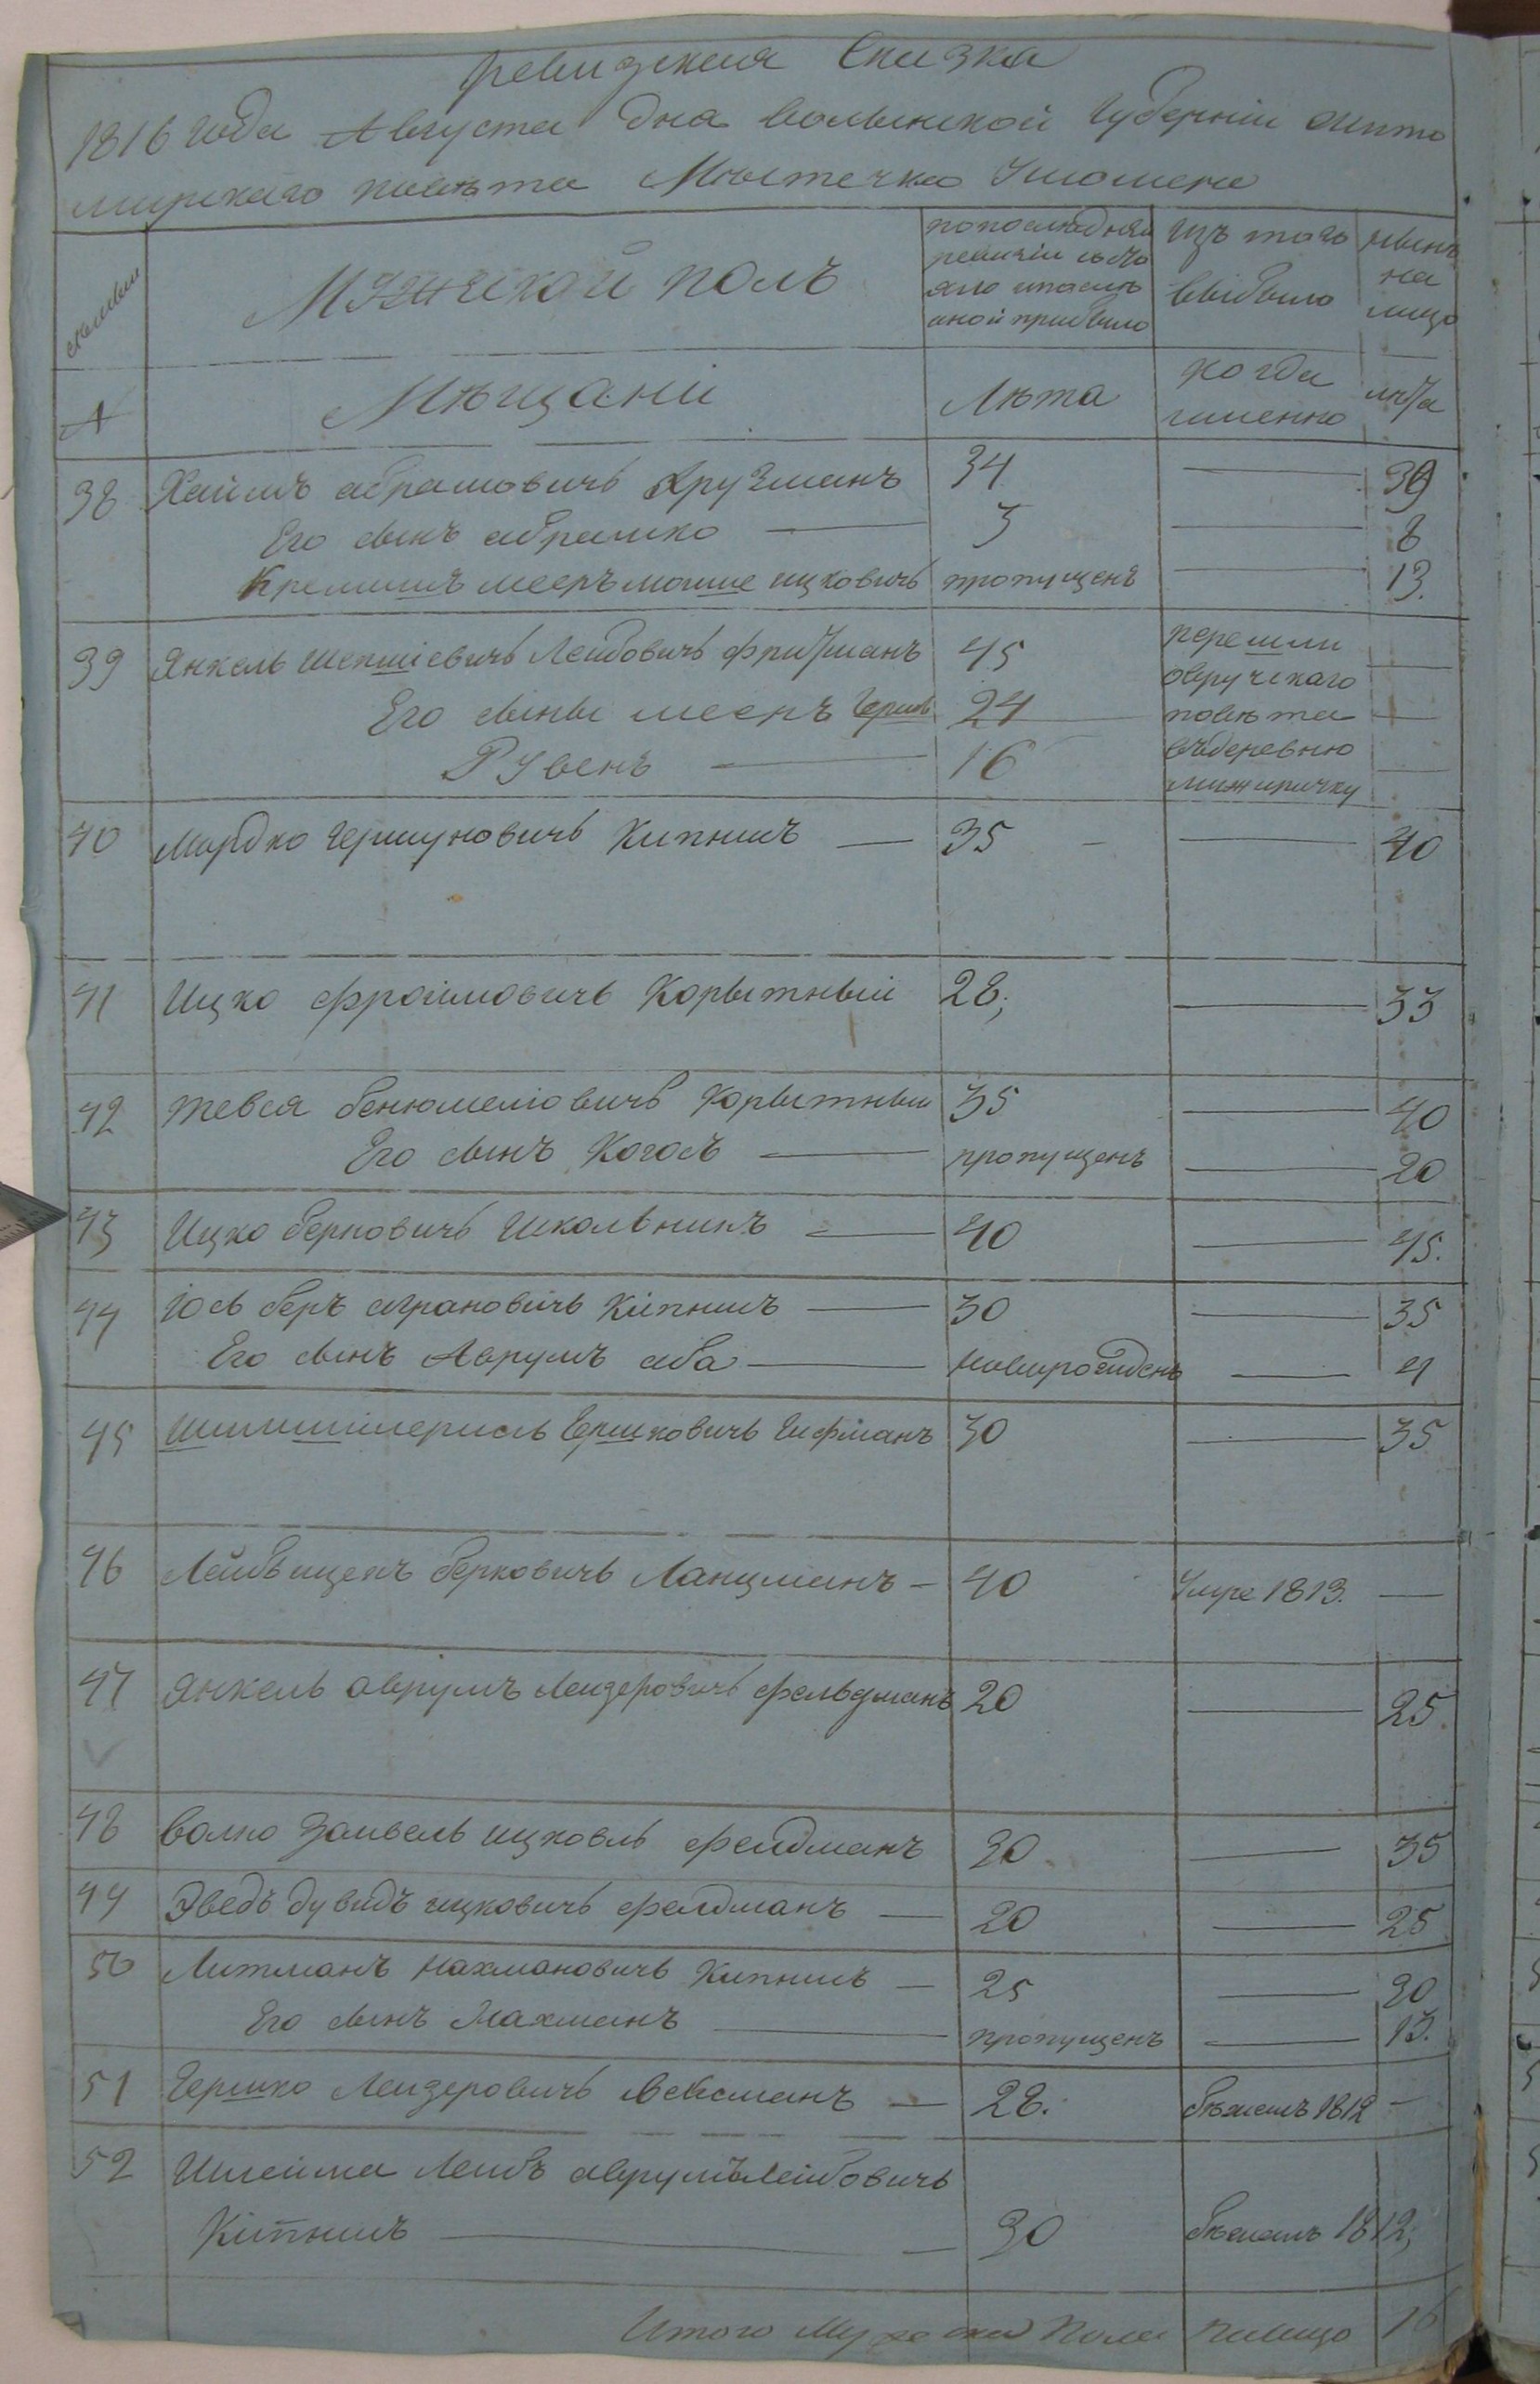 ревизская Сказка
1816 года Августа дня волынской Губерніи жито
мирского повѣта Мѣстечка Ушомера
семьи
Мужеской полъ
по последней
ревизіи состо
яло и после
оной прибыло
Изъ того
выбыло
нынѣ
на
лицо
Мѣщани
Лѣта
когда
именно
лѣта
38 Хаимъ абрамовичъ Кругманъ 34 — 39
Его сынъ абрамко — 3 — 8
Кремишъ меєръ мошье ицковичъ пропущенъ — 13.
39 Янкель Шепшіевичъ Леибовичъ фритманъ 45 перешли
Его сыны меєръ Гершъ 24 овручскаго повѣта
Рувенъ — 16 въ деревню мижиричку
40 Мордко Гершуновичъ Кипнисъ — 35 — 40
41 Ицко фроимовичъ Корытный 28; — 33
42 тевея бенюмеіовичъ Корытный 35 — 40
Его сынъ Когосъ — пропущенъ — 20
43 Ицко берковичъ Школьникъ — 40 — 45.
44 Іось беръ аграновичъ Кіпнисъ — 30 — 35
Его сынъ Аврумъ аба — новорожденъ — 4
45 Гершковичъ Гифманъ 30 — 35
46 Лейбъ ицекъ берковичъ Ланцманъ — 40 Умре 1813. —
47 Янкель аврумъ Леизеровичъ фельдманъ 20 — 25.
48 волко Зоивель ицковъ фелдманъ 30 — 35
49 Эведъ дувидъ ицковичъ фелдманъ — 20 — 25
50 Литманъ нахмановичъ Кипнисъ — 25 — 30
Его сынъ Нахманъ — пропущенъ — 13.
51 Гершко Леизеровичъ Ваксманъ — 28. бѣжалъ 1812 —
52 Шлейма Леибъ аврумълейбовичъ
Кіпнисъ — 30 бѣжалъ 1812;
Итого мужеска пола налицо 16